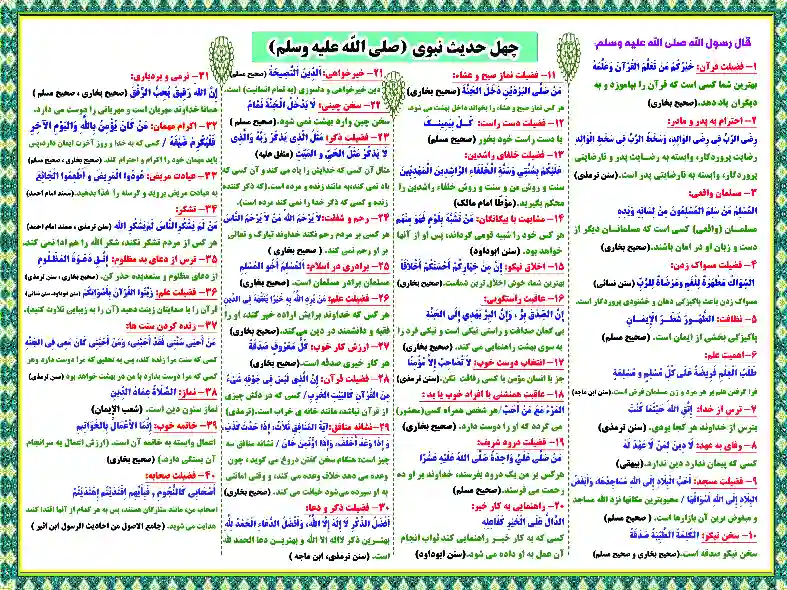 چهل حدیث نبوی (صلی الله علیه وسلم)
قال رسول الله صلی الله علیه وسلم:
۱- فضیلت قرآن: خَیْرُکُمْ مَنْ تَعَلَّمَ القُرْآنَ وَعَلَّمَهُ
بهترین شما کسی است که قرآن را بیاموزد و به
دیگران یاد دهد.(صحیح بخاری)
۲- احترام به پدر و مادر:
رِضَی الرَّبِّ فِی رِضَی الوَالِدِ، وَسَخَطُ الرَّبِّ فِی سَخَطِ الْوَالِدِ
رضایت پروردگار، وابسته به رضایت پدر و نارضایتی
پروردگار، وابسته به نارضایتی پدر است.(سنن ترمذی)
۳- مسلمان واقعی:
المُسْلِمُ مَنْ سَلِمَ المُسْلِمُونَ مِنْ لِسَانِهِ وَیَدِهِ
مسلمان (واقعی) کسی است که مسلمانان دیگر از
دست و زبان او در امان باشند.(صحیح بخاری)
۴- فضیلت مسواک زدن:
السِّوَاکُ مَطْهَرَةٌ لِلْفَمِ وَمَرْضَاةٌ لِلرَّبِّ (سنن نسائی)
مسواک زدن باعث پاکیزگی دهان و خشنودی پروردگار است.
۵- نظافت: الطُّهُورُ شَطْرُ الْإِیمَانِ
پاکیزگی بخشی از ایمان است. (صحیح مسلم)
۶-اهمیت علم:
طَلَبُ الْعِلْمِ فَرِیضَةٌ عَلَی کُلِّ مُسْلِمٍ وَ مُسْلِمَةٍ
فرا گرفتن علم بر هر مرد و زن مسلمان فرض است.(سنن ابن ماجه)
۷- ترس از خدا: اتَّقِ اللَّهَ حَیْثُمَا کُنْتَ
بترس از خداوند هر کجا بودی. (سنن ترمذی)
۸- وفای به عهد: لَا دِینَ لِمَنْ لَا عَهْدَ لَهُ
کسی که پیمان ندارد دین ندارد.(بیهقی)
۹- فضیلت مسجد: أَحَبُّ الْبِلَادِ إِلَی اللهِ مَسَاجِدُهَا، وَأَبْغَضُ
الْبِلَادِ إِلَی اللهِ أَسْوَاقُهَا / محبوبترین مکانها نزد الله مساجد
و مبغوض ترین آن بازارها است. ( صحیح مسلم)
۱۰- سخن نیکو: الْکَلِمَةُ الطَّیِّبَةُ صَدَقَةٌ
سخن نیکو صدقه است.(صحیح بخاری و صحیح مسلم)
۱۱- فضیلت نماز صبح و عشاء:
مَنْ صَلَّی البَرْدَیْنِ دَخَلَ الجَنَّةَ (صحیح بخاری)
هر کس نماز صبح و عشاء را بخواند داخل بهشت می شود.
۱۲- فضیلت دست راست: کُلْ بِیَمِینِکَ
با دست راست خود بخور (صحیح مسلم)
۱۳- فضیلت خلفای راشدین:
عَلَیْکُمْ بِسُنَّتِی وَسُنَّةِ الْخُلَفَاءِ الرَّاشِدِینَ الْمَهْدِیِّینَ
سنت و روش من و سنت و روش خلفاء راشدین را
محکم بگیرید.(موطّا امام مالک)
۱۴- مشابهت با بیگانگان: مَنْ تَشَبَّهَ بِقَوْمٍ فَهُوَ مِنْهُمْ
هر کس خود را شبیه قومی گرداند، پس او از آنها
خواهد بود. (سنن ابوداود)
۱۵- اخلاق نیکو: إِنَّ مِنْ خِیَارِکُمْ أَحْسَنَکُمْ أَخْلَاقًا
بهترین شما، خوش اخلاق ترین شماست.(صحیح بخاری)
۱۶- عاقبت راستگویی:
إِنَّ الصِّدْقَ بِرٌّ ، وَإِنَّ الْبِرَّ یَهْدِی إِلَی الْجَنَّةِ
بی گمان صداقت و راستی نیکی است و نیکی فرد را
به سوی بهشت راهنمایی می کند. (صحیح بخاری)
۱۷- انتخاب دوست خوب: لَا تُصَاحِبْ إِلَّا مُؤْمِنًا
جز با انسان مؤمن با کسی رفاقت نکن.(سنن ترمذی)
۱۸- عاقبت همنشینی با افراد خوب یا بد :
المَرْءُ مَعَ مَنْ أَحَبَّ/هر شخص همراه کسی(محشور)
می گردد که او را دوست دارد. (صحیح بخاری)
۱۹- فضیلت درود شریف:
مَنْ صَلَّی عَلَیَّ وَاحِدَةً صَلَّی اللهُ عَلَیْهِ عَشْرًا
هرکس بر من یک درود بفرستد، خداوند بر او ده
رحمت می فرستد.(صحیح مسلم)
۲۰- راهنمایی به کار خیر:
الدَّالُّ عَلَی الْخَیْرِ کَفَاعِلِهِ
کسی که به کار خیر راهنمایی کند ثواب انجام
آن عمل به او داده می شود.(سنن ابوداود)
۲۱- خیرخواهی: الدِّینُ النَّصِیحَةُ (صحیح مسلم)
دین خیرخواهی و دلسوزی (به تمام انسانیت) است.
۲۲- سخن چینی: لَا یَدْخُلُ الْجَنَّةَ نَمَّامٌ
سخن چین وارد بهشت نمی شود.(صحیح مسلم)
۲۳- فضیلت ذکر: مَثَلُ الَّذِی یَذْکُرُ رَبَّهُ وَالَّذِی
لَا یَذْکُرُ مَثَلُ الحَیِّ وَ المَیِّتِ (متفق علیه)
مثال آن کسی که خدایش را یاد می کند و آن کسی که
یاد نمی کند،به مانند زنده و مرده است.(که ذکر کننده
زنده و کسی که ذکر خدا را نمی کند مرده است).
۲۴- رحم و شفقت:لَا یَرْحَمُ اللَّهُ مَنْ لَا یَرْحَمُ النَّاسَ
هر کسی بر مردم رحم نکند خداوند تبارک و تعالی
بر او رحم نمی کند. ( صحیح بخاری )
۲۵- برادری در اسلام: الْمُسْلِمُ أَخُو الْمُسْلِمِ
مسلمان برادر مسلمان است. (صحیح بخاری)
۲۶- فضیلت علم: مَنْ یُرِدِ اللَّهُ بِهِ خَیْرًا یُفَقِّهْهُ فِی الدِّینِ
هر کس که خداوند برایش اراده خیر کند، او را
فقیه و دانشمند در دین می کند. (صحیح بخاری)
۲۷- ارزش کار خوب: کُلُّ مَعْرُوفٍ صَدَقَةٌ
هر کار خیری صدقه است.(صحیح بخاری)
۲۸- فضیلت قرآن: إِنَّ الَّذِی لَیْسَ فِی جَوْفِهِ شَیْءٌ
مِنَ القُرْآنِ کَالبَیْتِ الخَرِبِ/ کسی که در دلش چیزی
از قرآن نباشد، مانند خانه ی خراب است.(ترمذی)
۲۹- نشانه منافق:آیَةُ المُنَافِقِ ثَلَاثٌ: إِذَا حَدَّثَ کَذَبَ،
وَ إِذَا وَعَدَ أَخْلَفَ، وَإِذَا اؤْتُمِنَ خَانَ / نشانه منافق سه
چیز است: هنگام سخن گفتن دروغ می گوید ، چون
وعده می دهد خلاف وعده می کند، و وقتی امانتی
به او سپرده می شود خیانت می کند. (صحیح بخاری)
۳۰- فضیلت ذکر و دعا:
أَفْضَلُ الذِّکْرِ لَا إِلَهَ إِلَّا اللَّهُ، وَأَفْضَلُ الدُّعَاءِ الحَمْدُ لِلَّهِ
بهترین ذکر لااله الا الله و بهترین دعا الحمد لله
است. (سنن ترمذی، ابن ماجه )
۳۱- نرمی و بردباری:
إِنَّ اللَّهَ رَفِیقٌ یُحِبُّ الرِّفْقَ (صحیح بخاری ، صحیح مسلم )
همانا خداوند مهربان است و مهربانی را دوست می دارد.
۳۲- اکرام مهمان: مَنْ کَانَ یُؤْمِنُ بِاللَّهِ وَالْیَوْمِ الْآخِرِ
فَلْیُکْرِمْ ضَیْفَهُ / کسی که به خدا و روز آخرت ایمان دارد،پس
باید مهمان خود را اکرام و احترام کند. (صحیح بخاری، صحیح مسلم)
۳۳- عیادت مریض: عُودُوا الْمَرِیضَ وَ أَطْعِمُوا الْجَائِعَ
به عیادت مریض بروید و گرسنه را غذا بدهید.(مسند امام احمد)
۳۴- تشکر:
مَنْ لَمْ یَشْکُرِ النَّاسَ لَمْ یَشْکُرِ اللَّهَ (سنن ترمذی ، مسند امام احمد)
هر کس از مردم تشکر نکند، شکر الله را هم ادا نمی کند.
۳۵- ترس از دعای بد مظلوم: اِتَّقِ دَعْوَةَ الْمَظْلُومِ
از دعای مظلوم و ستمدیده حذر کن. (صحیح بخاری ، سنن ترمذی)
۳۶- فضیلت علم: زَیِّنُوا الْقُرْآنَ بِأَصْوَاتِکُمْ
قرآن را با صدایتان زینت دهید (آن را به زیبایی تلاوت کنید).
۳۷- زنده کردن سنت ها:
مَنْ أَحْیَی سُنَّتِی فَقَدْ أَحَبَّنِی، وَمَنْ أَحَبَّنِی کَانَ مَعِی فِی الجَنَّةِ
کسی که سنت مرا زنده کند، پس به تحقیق که مرا دوست دارد وهر
کسی که مرا دوست بدارد با من در بهشت خواهد بود (سنن ترمذی)
۳۸- نماز: الصَّلَاةُ عِمَادُ الدِّینِ
نماز ستون دین است. (شعب الإیمان)
۳۹- خاتمه خوب: إِنَّمَا الْأَعْمَالُ بِالْخَوَاتِیمِ
اعمال وابسته به خاتمه آن است. (ارزش اعمال به سرانجام
آن بستگی دارد). (صحیح بخاری)
۴۰- فضیلت صحابه:
أَصْحَابِی کَالنُّجُومِ ، فَبِأَیِّهِمُ اقْتَدَیْتُمُ اهْتَدَیْتُمْ
اصحاب من، مانند ستارگان هستند، پس به هر کدام از آنها اقتدا کنند
هدایت می شوید. (جامع الاصول من احادیث الرسول ابن اثیر )